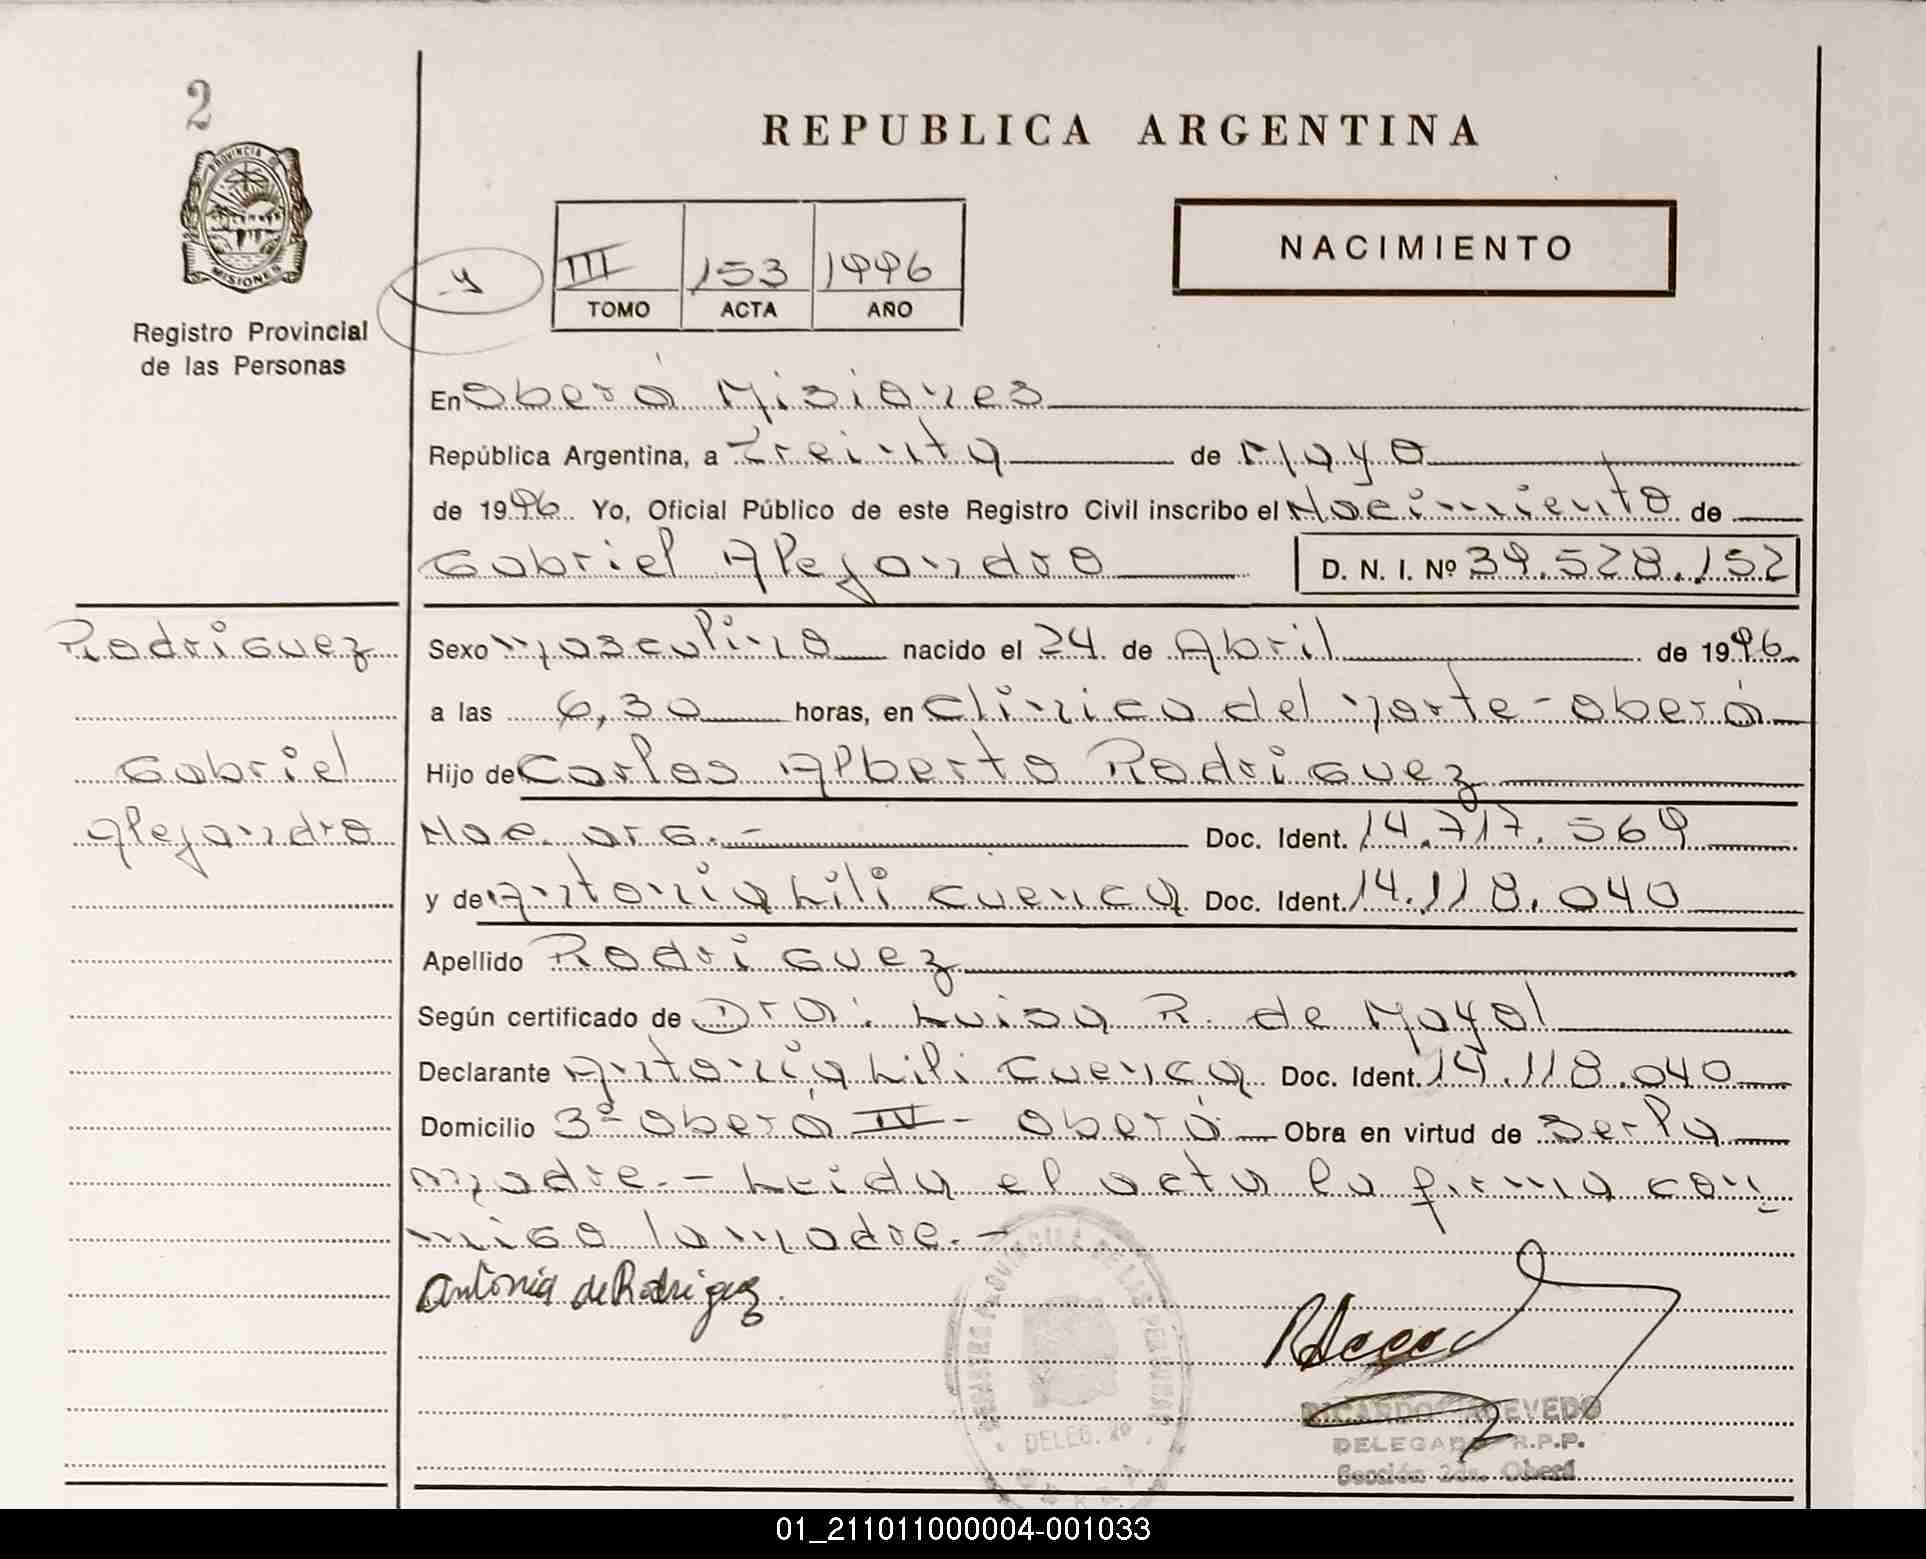 2
PROVINCIA DE
MISIONES
Registro Provincial
de las Personas
REPUBLICA ARGENTINA
NACIMIENTO
III 153 1996
TOMO ACTA AÑO
En Oberá Misiones
República Argentina, a Treinta de Mayo
de 1996. Yo, Oficial Público de este Registro Civil inscribo el Nacimiento de
Gabriel Alejandro D. N. I. Nº 39.528.152
Rodriguez
Gabriel
Alejandro
Sexo masculino nacido el 24 de Abril de 1996
a las 6,30 horas, en Clinica del Norte - Oberá
Hijo de Carlos Alberto Rodriguez
Nac. arg. - Doc. Ident. 14.717.569
y de Antonia Lili Cuenca Doc. Ident. 14.118.040
Apellido Rodriguez
Según certificado de Dra: Luisa R. de Mayol
Declarante Antonia Lili Cuenca Doc. Ident. 14.118.040
Domicilio 3º Oberá IV - Oberá Obra en virtud de ser la
madre. - Leida el acta la firma con
migo la madre. -
Antonia de Rodriguez.
DELEG. 2º
RICARDO ACEVEDO
DELEGADO R.P.P.
Sección 2da. Oberá
01_211011000004-001033